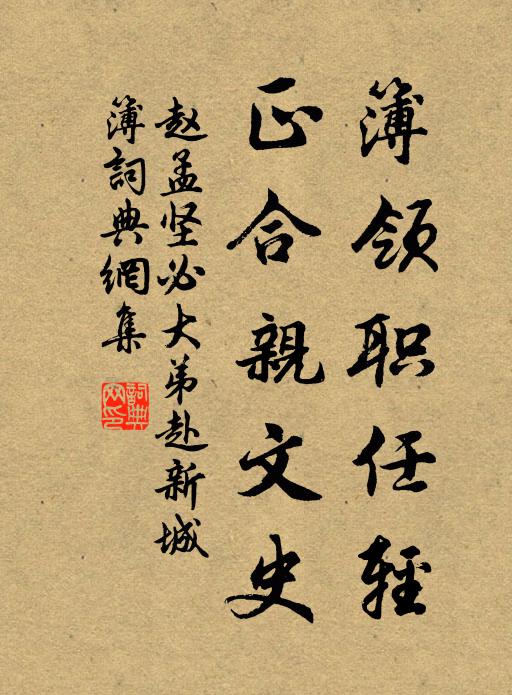 簿领职任轻
正合親文史
赵孟坚必大弟赴新城
簿詞典網集
詞典網印